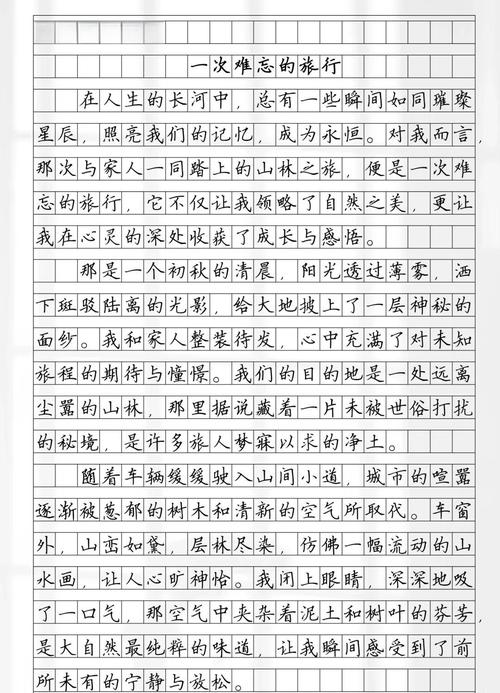 一次难忘的旅行
在人生的长河中，总有一些瞬间如同璀璨
星辰，照亮我们的记忆，成为永恒。对我而言，
那次与家人一同踏上的山林之旅，便是一次难
忘的旅行，它不仅让我领略了自然之美，更让
我在心灵的深处收获了成长与感悟。
那是一个初秋的清晨，阳光透过薄雾，洒
下斑驳陆离的光影，给大地披上了一层神秘的
面纱。我和家人整装待发，心中充满了对未知
旅程的期待与憧憬。我们的目的地是一处远离
尘嚣的山林，那里据说藏着一片未被世俗打扰
的秘境，是许多旅人梦寐以求的净土。
随着车辆缓缓驶入山间小道，城市的喧嚣
逐渐被葱郁的树木和清新的空气所取代。车窗
外，山峦如黛，层林尽染，仿佛一幅流动的山
水画，让人心旷神怡。我闭上眼睛，深深地吸
了一口气，那空气中夹杂着泥土和树叶的芬芳，
是大自然最纯粹的味道，让我瞬间感受到了前
所未有的宁静与放松。